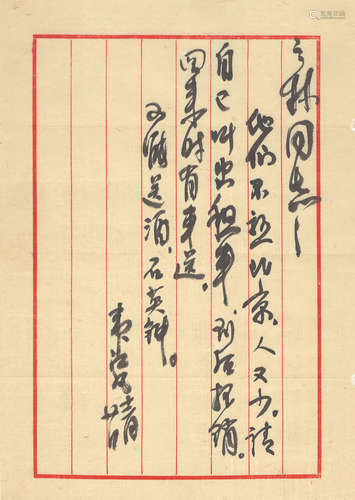 林同志：
他们不熟北京，人又少。请
自己叫出租车，到后报销。
回来时有车送。
送酒，石英钟。
韦江凡